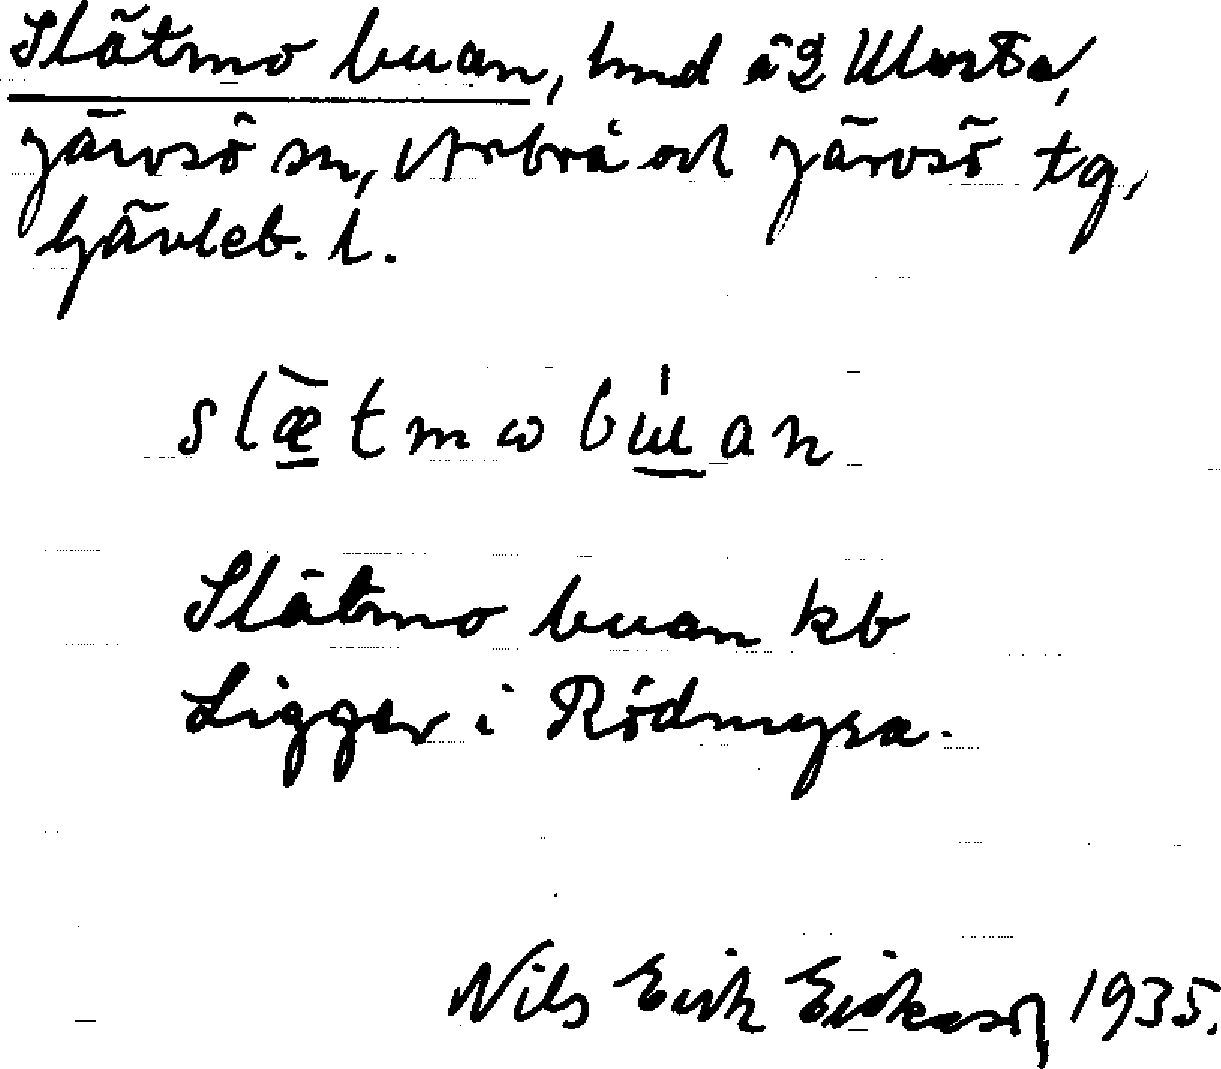 Slätmo buan, hmd å 2 Ulvsta,
Järvsö sn, Arbrå och Järvsö tg,
Gävleb. l.
slæ̲tmωbɯ̲an
Slätmo buan kb
Ligger i Rödmyra.
Nils Erik Eriksson 1935.